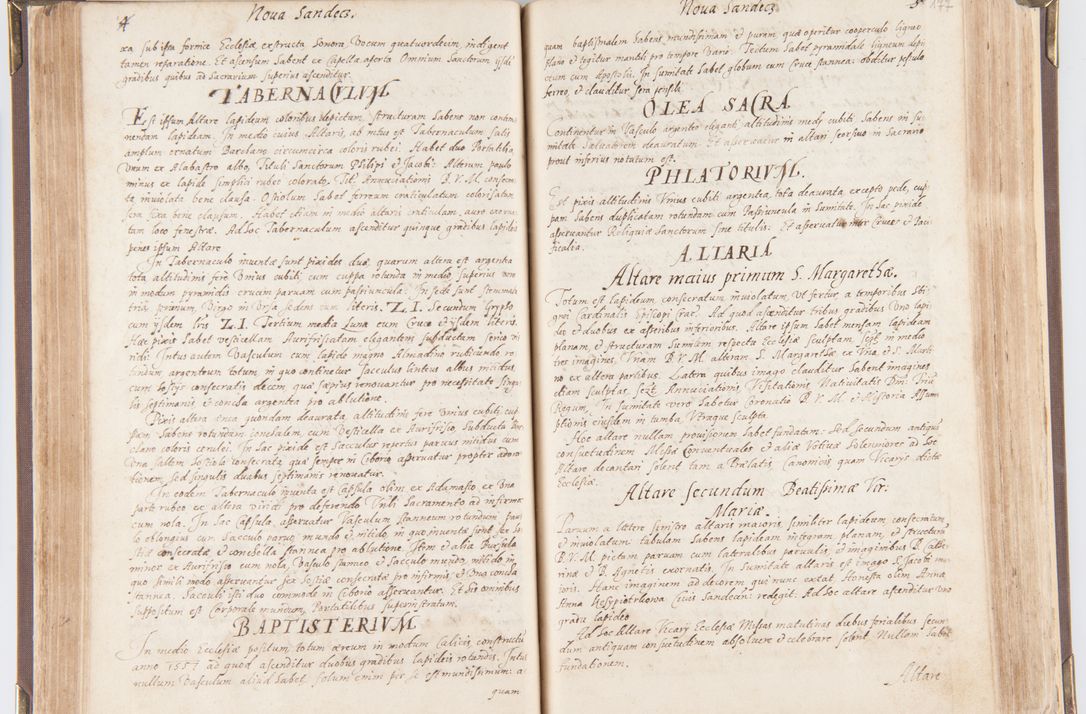 4
Noua Sandecz.
xa sub ipsa fornice Ecclesiæ extructa Sonora, Vocum quatuordecim, indigent
tamen reparatione. Et ascensum habent ex Capella aperta Omnium Sanctorum ijsdē
gradibus quibus ad Sacrarium superius ascenditur.
TABERNACVLVM.
Est ipsum Altare lapideum coloribus depictum, structuram habens non contin=
nentam lapideam. In medio cuius Altaris, ab intus est Tabernaculum satis
amplum ornatum Barchano circumcirca coloris rubei. Habet duo Portatilia,
Vnum ex Alabastro albo, Tituli Sanctorum Philipi et Jacobi. Alterum paulo
minus ex lapide simplici rubeo colorato, Tit. Annunciationis B. V. M. consecra
ta, inuiolata bene clausa. Ostiolum habet ferreum craticulatum colorisatum
sera fixa bene clausum. Habet etiam in medio altaris craticulam, auro exorna=
tam loco fenestræ. Ad hoc Tabernaculum ascenditur quinque gradibus lapideis
penes ipsum Altare.
In Tabernaculo inuentæ sunt pixides duæ quarum altera est argentea
tota altitudinis fere Vnius cubiti cum cuppa rotunda in medio, superius vero
in modum pyramidis crucem paruam cum passiuncula. In sede sunt stemmata
tria, primum, Virgo in Vrsa sedens cum literis, Z. I. Secundum Gryfo
cum ijsdem lris Z. I. Tertium media Luna cum Cruce et ijsdem literis.
Hæc pixis habet vesticellam Aurifrisiatam elegantem subductam serico vi
ridi. Intus autem Vasculum cum lapide magno Almadino rubicundo ro
tundum argenteum totum in quo continetur sacculus linteus albus nitidus,
cum hostijs consecratis decem, quæ sæpius renouantur pro necessitate singu
lis septimanis et concha argentea pro ablutione.
Pixis altera ænea quondam deaurata, altitudinis fere Vnius cubiti, cup
pam habens rotundam, conchalem, cum Vesticella ex Aurifrisio, Subducta Bar
chano coloris cerulei. In hac pixide est Sacculus repertus paruus nitidus cum
Vna saltem hostiola consecrata quæ semper in Ciborio asseruatur propter adora
tionem, sed singulis duabus septimanis renouatur.
In eodem Tabernaculo inuenta est Capsula olim ex Adamasto ex Vna
parte rubeo ex altera viridi pro deferendo Vnli Sacramento ad infirmos
cum nola. In hac Capsula, asseruatur Vasculum stanneum rotundum pau
lo oblongius cur. Sacculo nouo, mundo et nitido, in quo inuentæ sunt sex hos
tiæ consecratæ et conchella stannea pro ablutione. Item et alia Bursula
minor ex Aurifrisio cum nola, Vasculo stanneo et Sacculo mundo, nitido in
quo simili modo asseruantur sex hostiæ consecratæ pro infirmis, et Vna concha
stannea. Sacculi isti duo commode in Ciborio asseruantur. Et his omnibus
suppositum est Corporale mundum, Portatilibus superinstratum.
BAPTISTERIVM.
In medio Ecclesiæ positum totum æreum in modum Calicis, constructū
anno 1557 ad quod ascenditur duobus gradibus lapideis rotundis. Intus
nullum Vasculum aliud habet, solum enim per se est mundissimum: a
quam
Noua Sandecz
5
177
quam baptismalem habens mundissimam et puram, quod operitur cooperculo ligneo
plano et tegitur mantili pro tempore vario. Tectum habet pyramidale ligneum depi
ctum cum Apostolis. In sumitate habet globum cum Cruce stannea: obditur pessulo
ferreo, et clauditur sera pensili.
OLEA SACRA.
Continentur in Vasculo argenteo eleganti, altitudinis medij cubiti habens in su
mitate Saluatorem deauratum. Et asseruatur in altari seorsiuo in Sacrario
prout inferius notatum est.
PHIATORIVM.
Est pixis altitudinis Vnius cubiti argentea, tota deaurata excepto pede, cup
pam habens duplicatam rotundam cum Passiuncula in Sumitate. In hac pixide
asseruantur Reliquiæ Sanctorum sine titulis. Et asseruatur inter Cruces et Paci
ficalia.
ALTARIA
Altare maius primum S. Margarethæ.
Totum est lapideum consecratum, inuiolatum, Vt fertur, a temporibus Sbi
gnei Cardinalis Episcopi Crac. Ad quod ascenditur tribus gradibus Vno lapi
deo et duobus ex asseribus inferioribus. Altare ipsum habet mensam lapideam
planam, et structuram Summam respectu Ecclesiæ sculptam, Sczt in medio
tres imagines, Vnam B. V. M. alteram S. Margarethæ ex Vna, et S. Marti
no ex altera partibus. Latera quibus imago clauditur habent imagines
etiam sculptas, sczt Annunciationis, Visitationis, Natiuitatis Dni: Triū
Regum, In Sumitate vero habetur Coronatio B. V. M. et Historia Assum
ptionis eiusdem in tumba, Vtraque sculpta.
Hoc altare nullam prouisionem habet fundatam: Sed secundum antiquā
consuetudinem Missæ Conuentuales et aliæ Votiuæ Solenniores ad hoc
Altare decantari solent tam a Prælatis, Canonicis, quam Vicarijs dictæ
Ecclesiæ.
Altare secundum Beatissimæ Vir:
Mariæ.
Paruum a latere sinistro altaris maioris, similiter lapideum, consecratum,
et inuiolatum, tabulam habens lapideam integram, planam, et structuram
B. V. M. pictam paruam cum lateralibus paruulis, et imaginibus B. Cathe
rinæ et B. Agnetis exornatis. In Sumitate altaris est imago S. Jacobi mi
ioris. Hanc imaginem ad decorem qui nunc extat honesta olim Anna
Anna Cziuis Sandecen: redegit. Ad hoc altare ascenditur vno
gradu lapideo.
Ad hoc Altare Vicarij Ecclesiæ Missas matutinas diebus ferialibus secun
dum antiquam consuetudinem absoluere et celebrare solent. Nullam habet
fundationem.
Altare